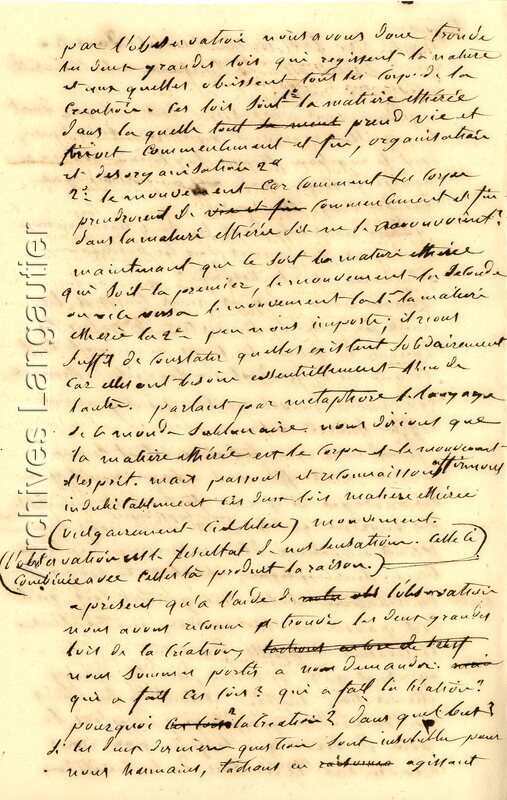 par l'observation nous avons donc trouvé
les deux grandes lois qui regissent la nature
et aux quelles obeissent tout les corps de la
creation. Ces lois sont 1º la matière étherée
dans la quelle tout se meut prend vie et
commencement et fin, organisation
et desorganisation
2º le mouvement car comment les corps
prendroient de vie et fin commencement et fin
dans la matiere étherée s'ils ne se mouvoient?
maintenant que ce soit la matiere étherée
qui soit la premiere, le mouvement la seconde
ou vice versa le mouvement la 1ere la matiere
étherée la 2e peu nous importe; il nous
suffit de constater quelles existent solidairement
car elles ont besoin essentiellement l'une de
l'autre. parlant par métaphore le langage
de ce monde sublunaire. nous dirions que
la matière étherée est le corps et le mouvement
l'esprit. mais passons et reconnaissons affirmons
indubitablement ces deux lois matière étherée
(vulgairement ciel bleu) mouvement.
(l'observation est le résultat de nos sensations. Celle ci
combinée avec celles là produit la raison.)
a présent qu'a l'aide de l'observation
nous avons reconnu et trouvée les deux grandes
lois de la création,
nous sommes portés a nous demander:
qui a fait ces lois? qui a fait la création?
pourquoi ces lois? la création? dans quel but?
Si les deux dernieres question sont insoluble pour
nous humains, tachons en raisonnant agissant
Archives Langautier